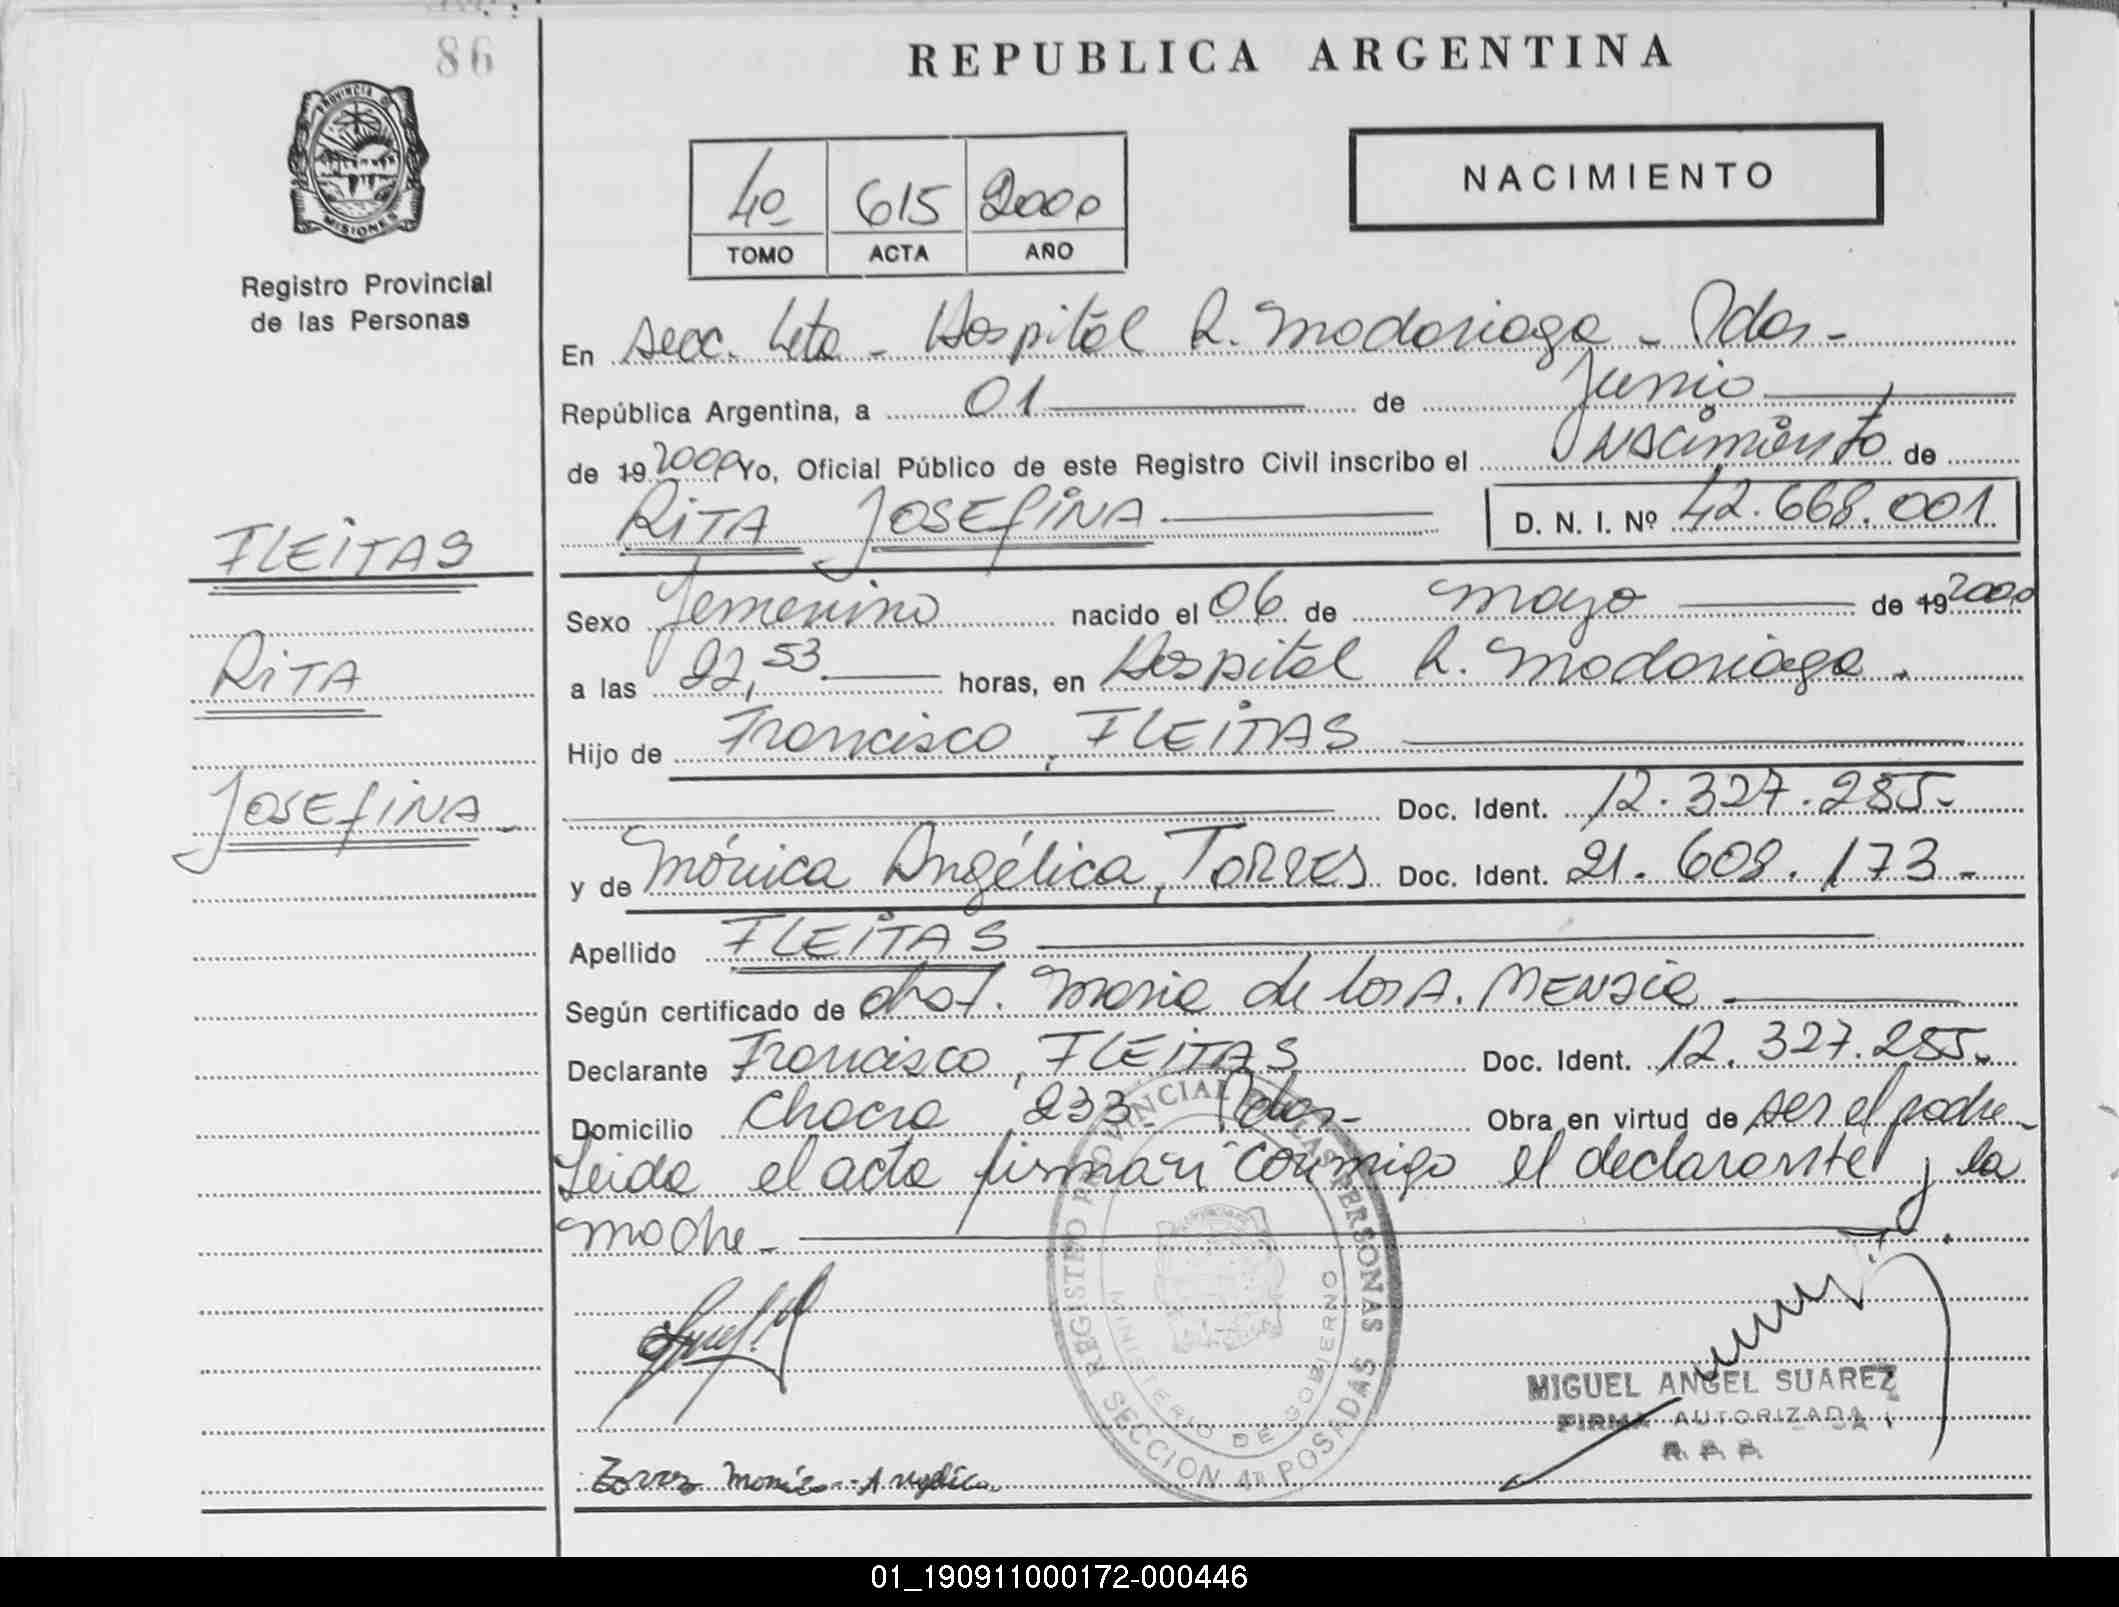 86
REPUBLICA ARGENTINA
PROVINCIA D
MISIONES
Registro Provincial
de las Personas
4º 615 2000
TOMO ACTA AÑO
NACIMIENTO
En Secc. 4ta - Hospital R. Madariaga - Pdas -
República Argentina, a 01 de Junio
de 19 2000 Yo, Oficial Público de este Registro Civil inscribo el Nacimiento de
RITA JOSEFINA D. N. I. Nº 42.668.001
FLEITAS
RITA
JOSEFINA
Sexo Femenino nacido el 06 de mayo de 19 2000
a las 22,53 horas, en Hospital R. Madariaga.
Hijo de Francisco, FLEITAS
Doc. Ident. 12.327.285-
y de Mónica Angélica, TORRES Doc. Ident. 21.608.173-
Apellido FLEITAS
Según certificado de obst. Maria de los A.
Declarante Francisco, FLEITAS Doc. Ident. 12.327.285-
Domicilio Chacra 233- Pdas- Obra en virtud de ser el padre-
Leida el acta firman conmigo el declarante y la
madre-
REGISTRO PROVINCIAL DE LAS PERSONAS
MINISTERIO DE GOBIERNO
SECCION 4ª POSADAS
MIGUEL ANGEL SUAREZ
FIRMA AUTORIZADA
Torres Monica Angelica
01_190911000172-000446